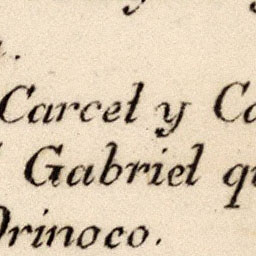 Carcel y Ca
Gabriel qu
Orinoco.